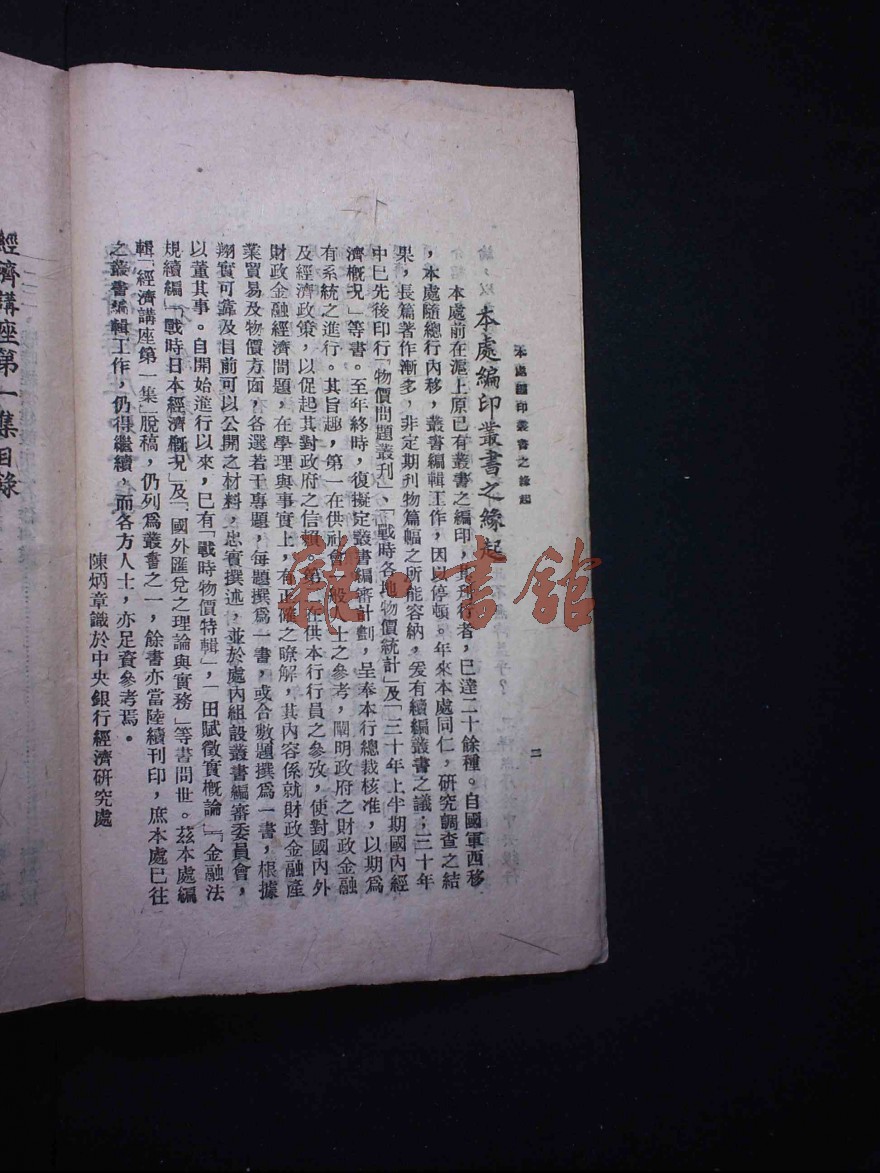 本處編印叢書之緣起
二
本處編印叢書之緣起
本處前在滬上原已有叢書之編印,其刊行者,已達二十餘種。自國軍西移
,本處隨總行內移,叢書編輯工作,因以停頓。年來本處同仁,研究調查之結
果,長篇著作漸多,非定期刊物篇幅之所能容納,爰有續編叢書之議;三十年
中已先後印行「物價問題叢刊」、「戰時各地物價統計」及「三十年上半期國內經
濟槪况」等書。至年終時,復擬定叢書編審計劃,呈奉本行總裁核准,以期爲
有系統之進行。其旨趣,第一在供社會一般人士之參考,闡明政府之財政金融
及經濟政策,以促起其對政府之信賴。第二在供本行行員之參攷,使對國內外
財政金融經濟問題,在學理與事實上,有正確之瞭解,其內容係就財政金融產
業貿易及物價方面,各選若干專題,每題撰爲一書,或合數題撰爲一書,根據
翔實可靠及目前可以公開之材料,忠實撰述,並於處內組設叢書編審委員會,
以董其事。自開始進行以來,已有「戰時物價特輯」,「田賦徵實槪論」「金融法
規續編」「戰時日本經濟槪况」及「國外匯兌之理論與實務」等書問世。茲本處編
輯「經濟講座第一集」脫稿,仍列爲叢書之一,餘書亦當陸續刊印,庶本處已往
之叢書編輯工作,仍得繼續,而各方人士,亦足資參考焉。
陳炳章識於中央銀行經濟研究處
經濟講座第一集目錄
親·書館